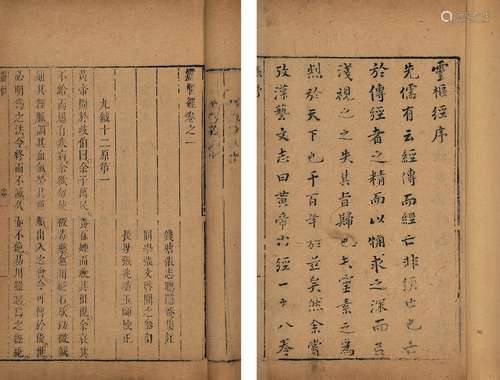 靈樞經序
先儒有云經傳而經亡非經亡也亡
於傳經者之精而以粗求之深而以
淺視之之失其旨歸也夫靈素之為
烈於天下也千百年於茲矣然余嘗
攷漢藝文志曰黃帝內經一十八卷
靈樞經卷之一
錢塘張志聰隱菴集註
同學張文啟開之參訂
長男張兆璜玉師校正
九鍼十二原第一
黃帝問於歧伯曰余子萬民養百姓而收其租稅余哀其
不給而屬有疾病余欲勿使被毒藥無用砭石欲以微鍼
通其經脈調其血氣營其逆順出入之會令可傳於後世
必明為之法令終而不滅久而不絕易用難忘為之經紀